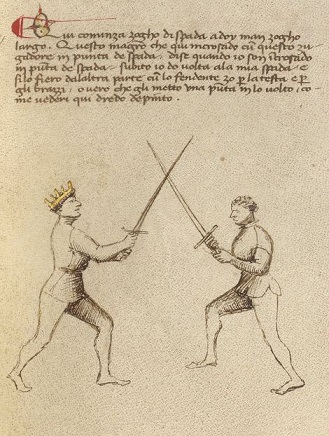 Qui cominza zogho di spada a doy man zogho
largo. Questo magistro che qui incrosado cum questo zu
gadore in punta de spada dise quando io son incrosado
in punta de spada subito io do volta ala mia spada e
filo fiero dal altra parte cum lo fendente zo per la testa e per
gli brazzi, o vero che gli metto una punta in lo volto, co
me vederi qui dredo depinto.